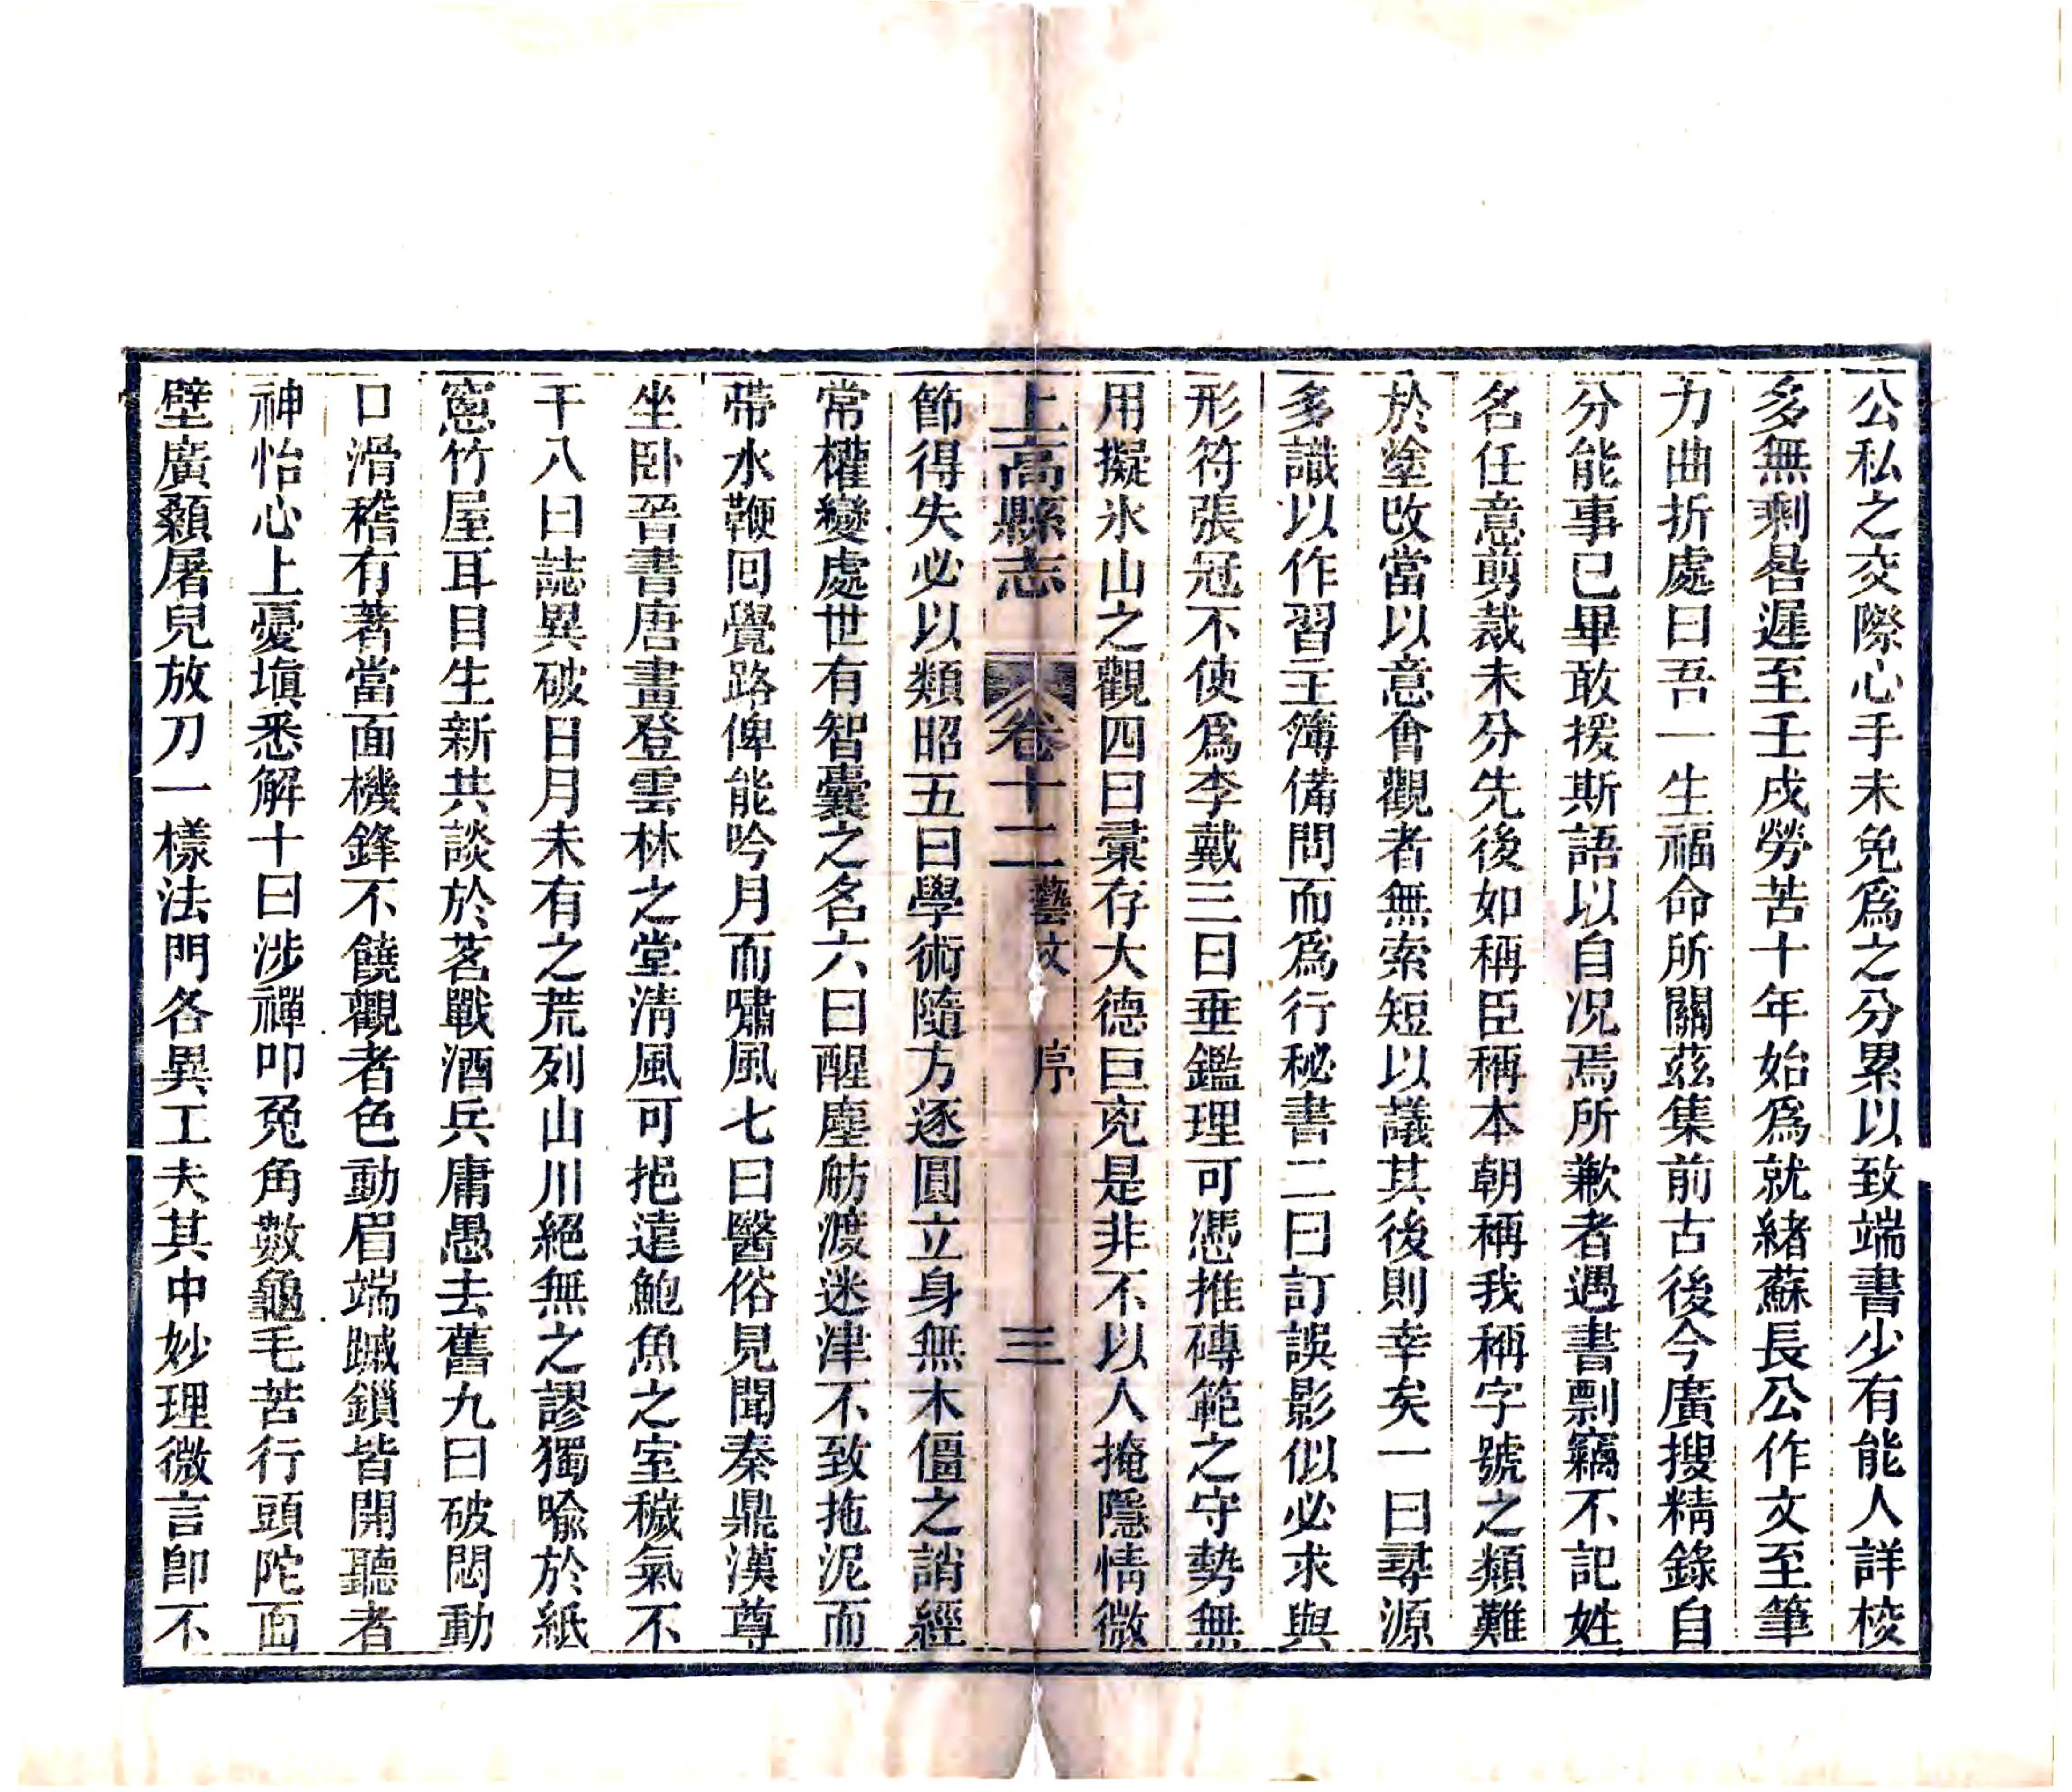 公私之交際心手未免爲之分累以致端書少有能人詳校
多無剩晷遲至壬戌勞苦十年始爲就緒蘇長公作文至筆
力曲折處曰吾一生福命所關茲集前古後今廣搜精錄自
分能事已畢敢援斯語以自况焉所歉者遇書剽竊不記姓
名任意剪裁未分先後如稱臣稱本朝稱我稱字號之類難
於塗改當以意會觀者無索短以議其後則幸矣一曰尋源
多識以作習主簿備問而爲行秘書二曰訂誤影似必求與
形符張冠不使爲李戴三曰垂鑑理可憑推磚範之守勢無
用擬氷山之觀四曰彙存大德巨兇是非不以人掩隱情微
上高縣志 卷十二 藝文 序 三
節得失必以類昭五曰學術隨方逐圓立身無木僵之誚經
常權變處世有智囊之名六曰醒塵舫渡迷津不致拖泥而
帶水鞭回覺路俾能吟月而嘯風七曰醫俗見聞秦鼎漢尊
坐卧晉書唐畫登雲林之堂淸風可挹遠鮑魚之室穢氣不
干八曰誌異破日月未有之荒列山川絕無之謬獨喩於紙
窻竹屋耳目生新共談於茗戰酒兵庸愚去舊九曰破悶動
口滑稽有著當面機鋒不饒觀者色動眉端蹴鎖皆開聽者
神怡心上憂塡悉解十曰涉禪叩兔角數龜毛苦行頭陀面
壁廣顙屠兒放刀一樣法門各異工夫其中妙理微言卽不